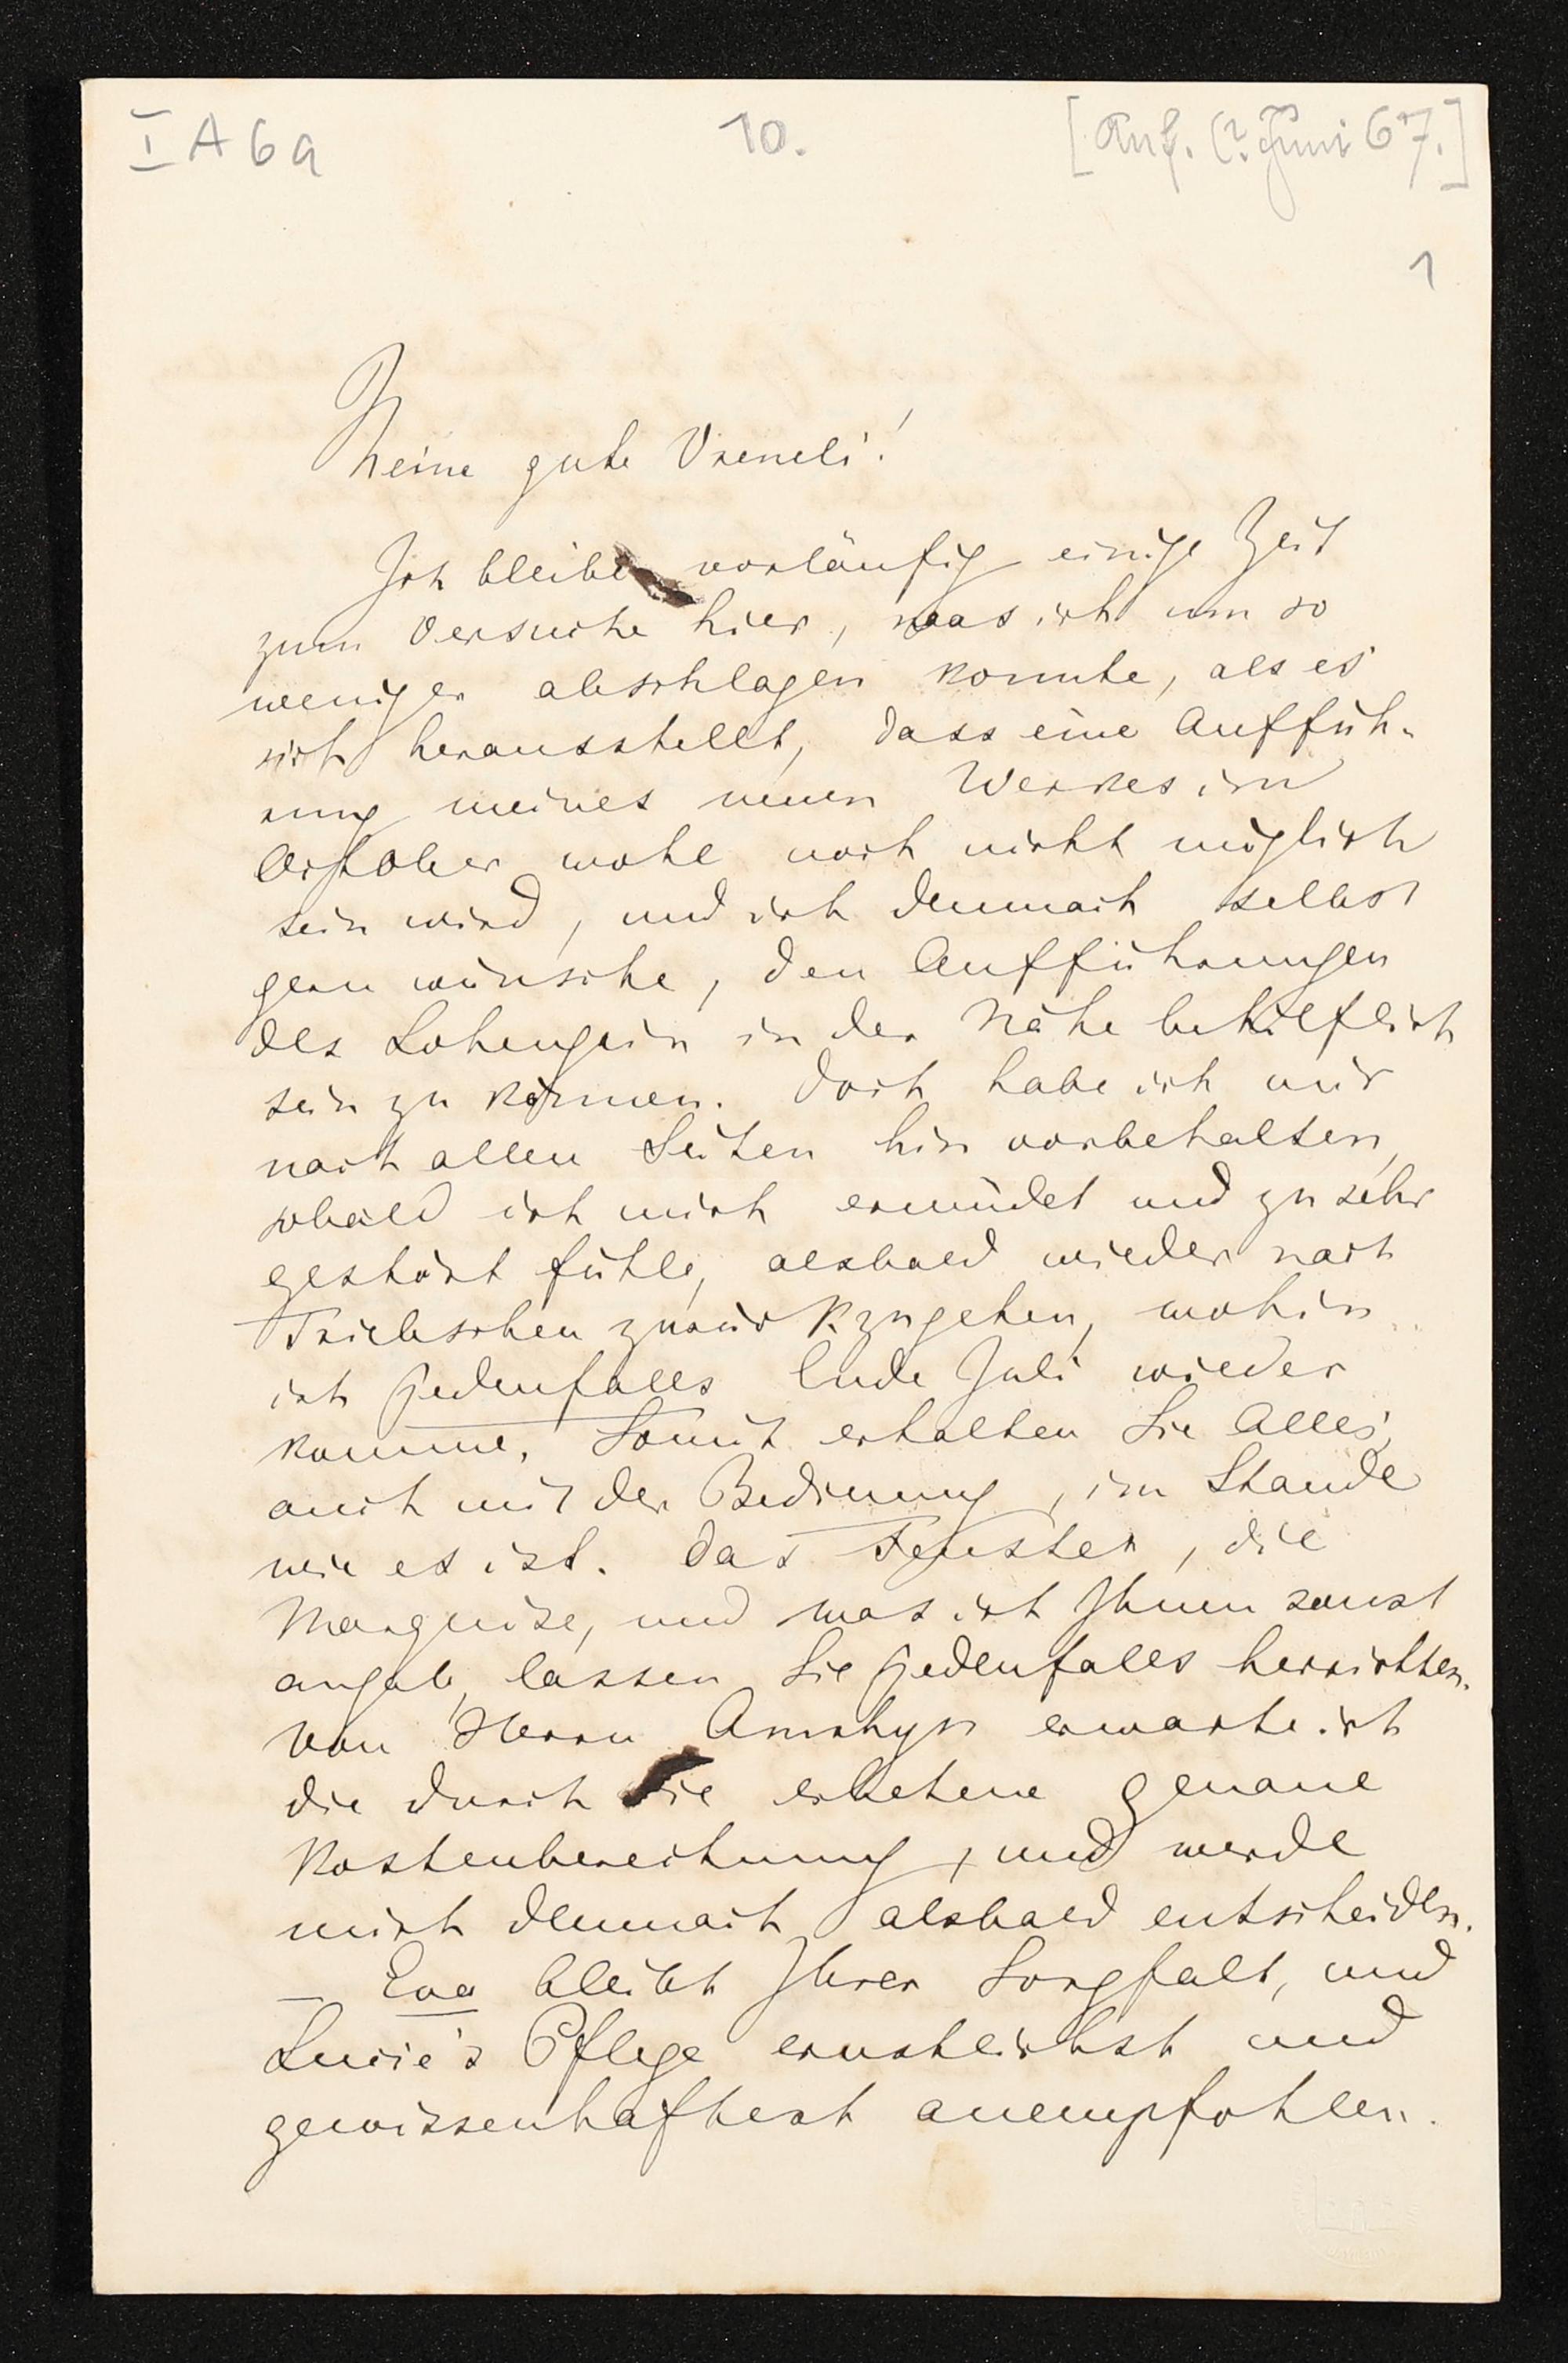 I A 6 a
10.
[Anf. (?. Juni 67.]
1
Meine gute Vreneli!
Ich bleibe vorläufig einige Zeit
zum Versuche hier, was ich um so
weniger abschlagen konnte, als es
sich herausstellt, dass eine Auffüh-
rung meines neuen Werkes im
October wohl noch nicht möglich
sein wird, und ich demnach selbst
gern wünsche, den Aufführungen
des Lohengrin in der Nähe behilflich
sein zu können. Doch habe ich mir
nach allen Seiten hin vorbehalten,
sobald ich mich ermüdet und zu sehr
gestört fühle, alsbald wieder nach
Triebschen zurückzugehen, wohin
ich jedenfalls Ende Juli wieder
komme. Somit erhalten Sie Alles,
auch mit der Bedienung, im Stande
wie es ist. Das Fenster, die
Marquise, und was ich Ihnen sonst
angab, lassen Sie jedenfalls herrichten.
Von Herrn Amrhyn erwarte ich
die durch Sie erbetene genaue
Kostenberechnung, und werde
mich demnach alsbald entscheiden.
– Eva bleibt Ihrer Sorgfalt, und
Lucie's Pflege ernstlichst und
gewissenhaftest anempfohlen.